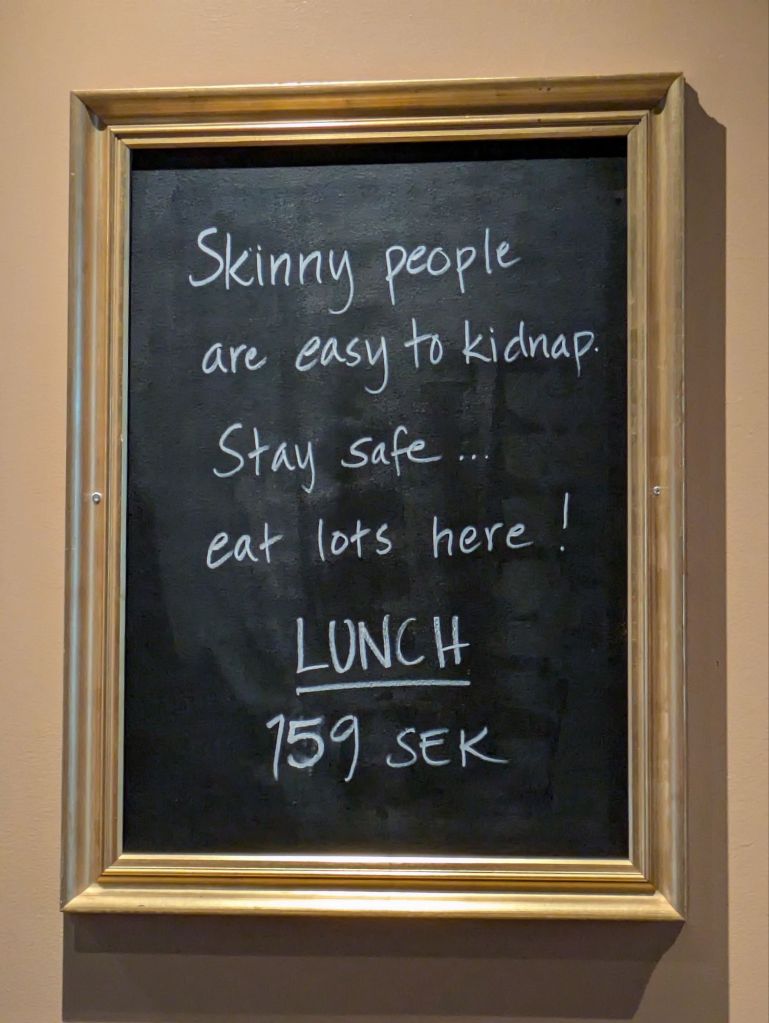 Skinny people
are easy to kidnap.
Stay safe...
eat lots here!
LUNCH
159 SEK